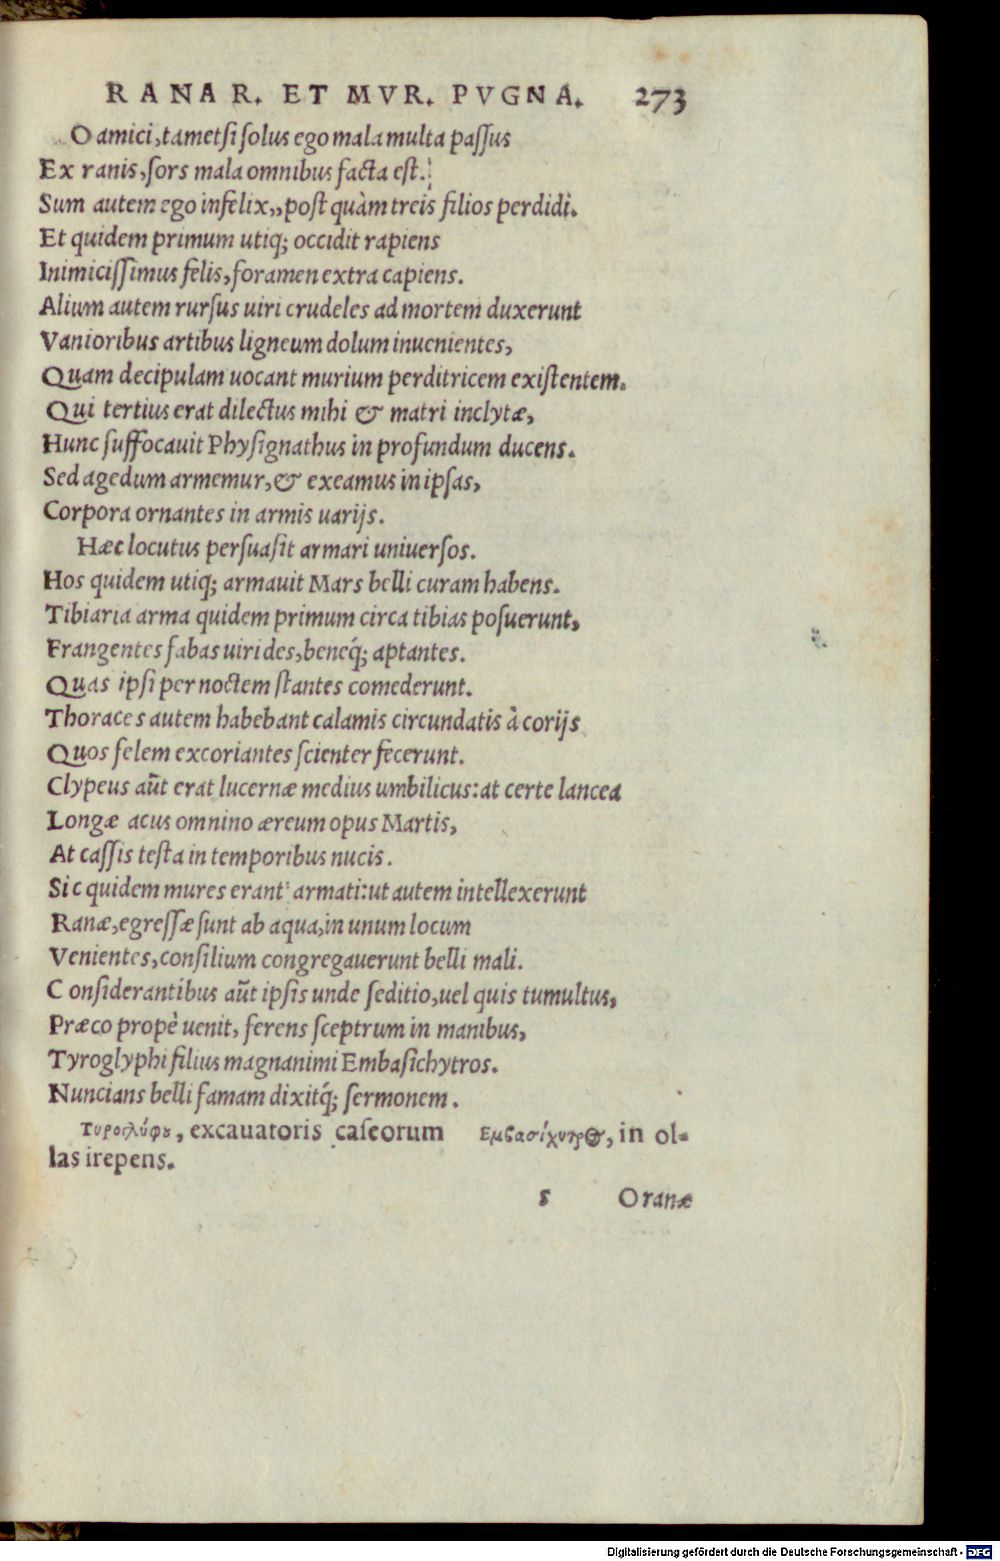 RANAR. ET MVR. PVGNA. 273
O amici, tametsi solus ego mala multa passus
Ex ranis, sors mala omnibus facta est.
Sum autem ego infelix,, post quàm treis filios perdidi.
Et quidem primum utiq; occidit rapiens
Inimicissimus felis, foramen extra capiens.
Alium autem rursus uiri crudeles ad mortem duxerunt
Vanioribus artibus ligneum dolum inuenientes,
Quam decipulam uocant murium perditricem existentem.
Qui tertius erat dilectus mihi & matri inclytæ,
Hunc suffocauit Physignathus in profundum ducens.
Sed agedum armemur, & exeamus in ipsas,
Corpora ornantes in armis uarijs.
Hæc locutus persuasit armari uniuersos.
Hos quidem utiq; armauit Mars belli curam habens.
Tibiaria arma quidem primum circa tibias posuerunt,
Frangentes fabas uirides, beneq́; aptantes.
Quas ipsi per noctem stantes comederunt.
Thoraces autem habebant calamis circundatis à corijs
Quos felem excoriantes scienter fecerunt.
Clypeus aūt erat lucernæ medius umbilicus: at certe lancea
Longæ acus omnino æreum opus Martis,
At cassis testa in temporibus nucis.
Sic quidem mures erant armati: ut autem intellexerunt
Ranæ, egressæ sunt ab aqua, in unum locum
Venientes, consilium congregauerunt belli mali.
Considerantibus aūt ipsis unde seditio, uel quis tumultus,
Præco propè uenit, ferens sceptrum in manibus,
Tyroglyphi filius magnanimi Embasichytros.
Nuncians belli famam dixitq́; sermonem.
Τυρογλύφου, excauatoris caseorum Εμβασίχυτρος, in ol-
las irepens.
s O ranæ
Digitalisierung gefördert durch die Deutsche Forschungsgemeinschaft - DFG